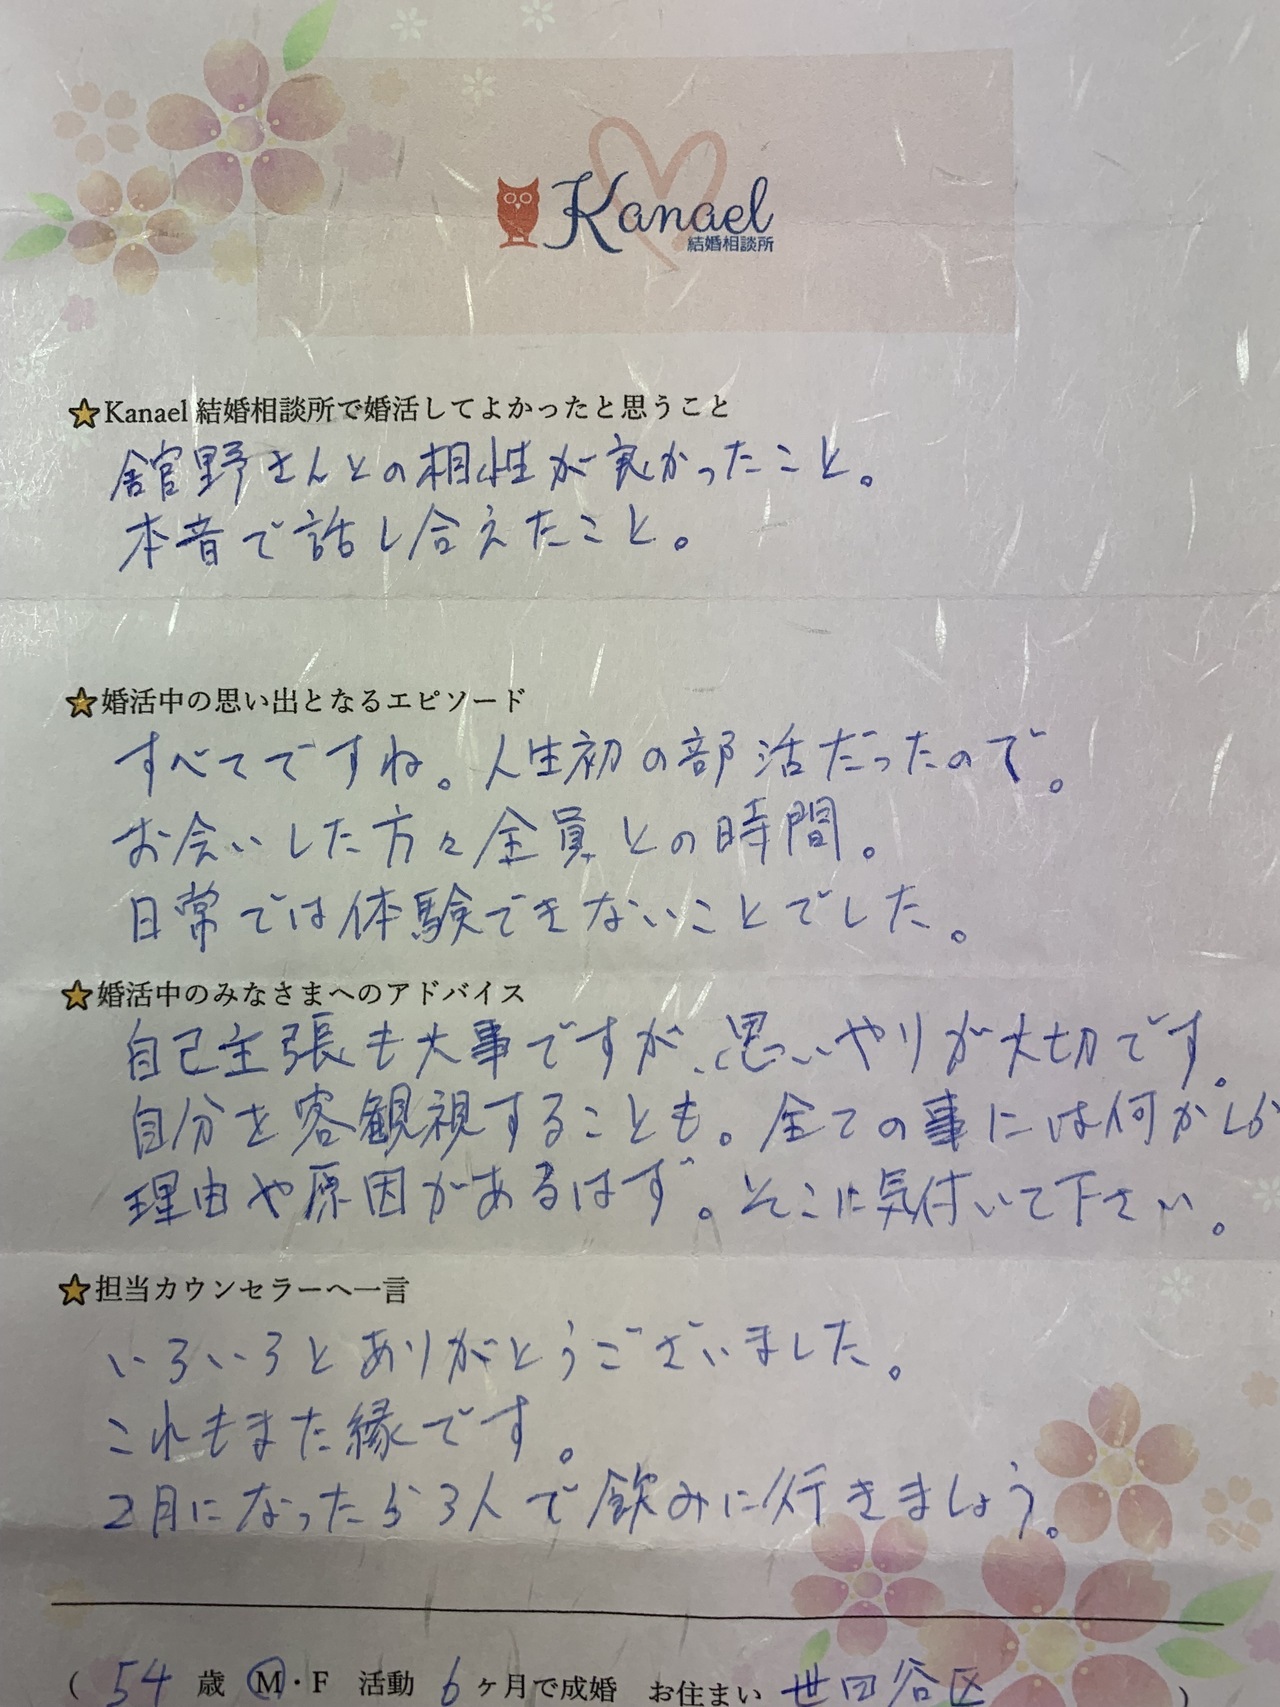 Kanael
結婚相談所
Kanael 結婚相談所で婚活してよかったと思うこと
舘野さんとの相性が良かったこと。
本音で話し合えたこと。
婚活中の思い出となるエピソード
すべてですね。人生初の部活だったので。
お会いした方々全員との時間。
日常では体験できないことでした。
婚活中のみなさまへのアドバイス
自己主張も大事ですが、思いやりが大切です。
自分を客観視することも。全ての事には何かしら
理由や原因があるはず。そこに気付いて下さい。
担当カウンセラーへ一言
いろいろとありがとうございました。
これもまた縁です。
2月になったら3人で飲みに行きましょう。
( 54 歳 M・F 活動 6 ヶ月で成婚 お住まい 世田谷区 )